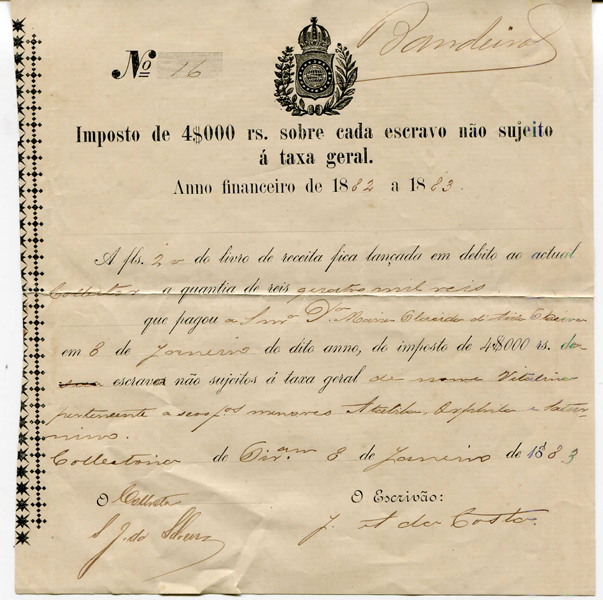 Nº 16
Bandeira
Imposto de 4$000 rs. sobre cada escravo não sujeito
á taxa geral.
Anno financeiro de 1882 a 1883.
A fls. 2 v do livro de receita fica lançada em debito ao actual
Collector a quantia de reis quatro mil reis
que pagou a Snrª D. Maria
em 8 de Janeiro do dito anno, do imposto de 4$000 rs.
escravos não sujeitos á taxa geral de nome Vitalina
pertencente a seos fºs menores
nino.
Collectoria de 8 de Janeiro de 1883
O Collector
O Escrivão:
S J. da
J. A da Costa.